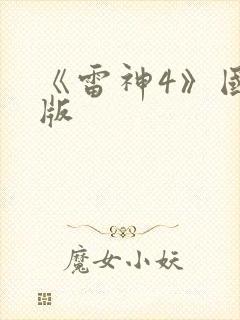 《雷神4》国
版
魔女小妖